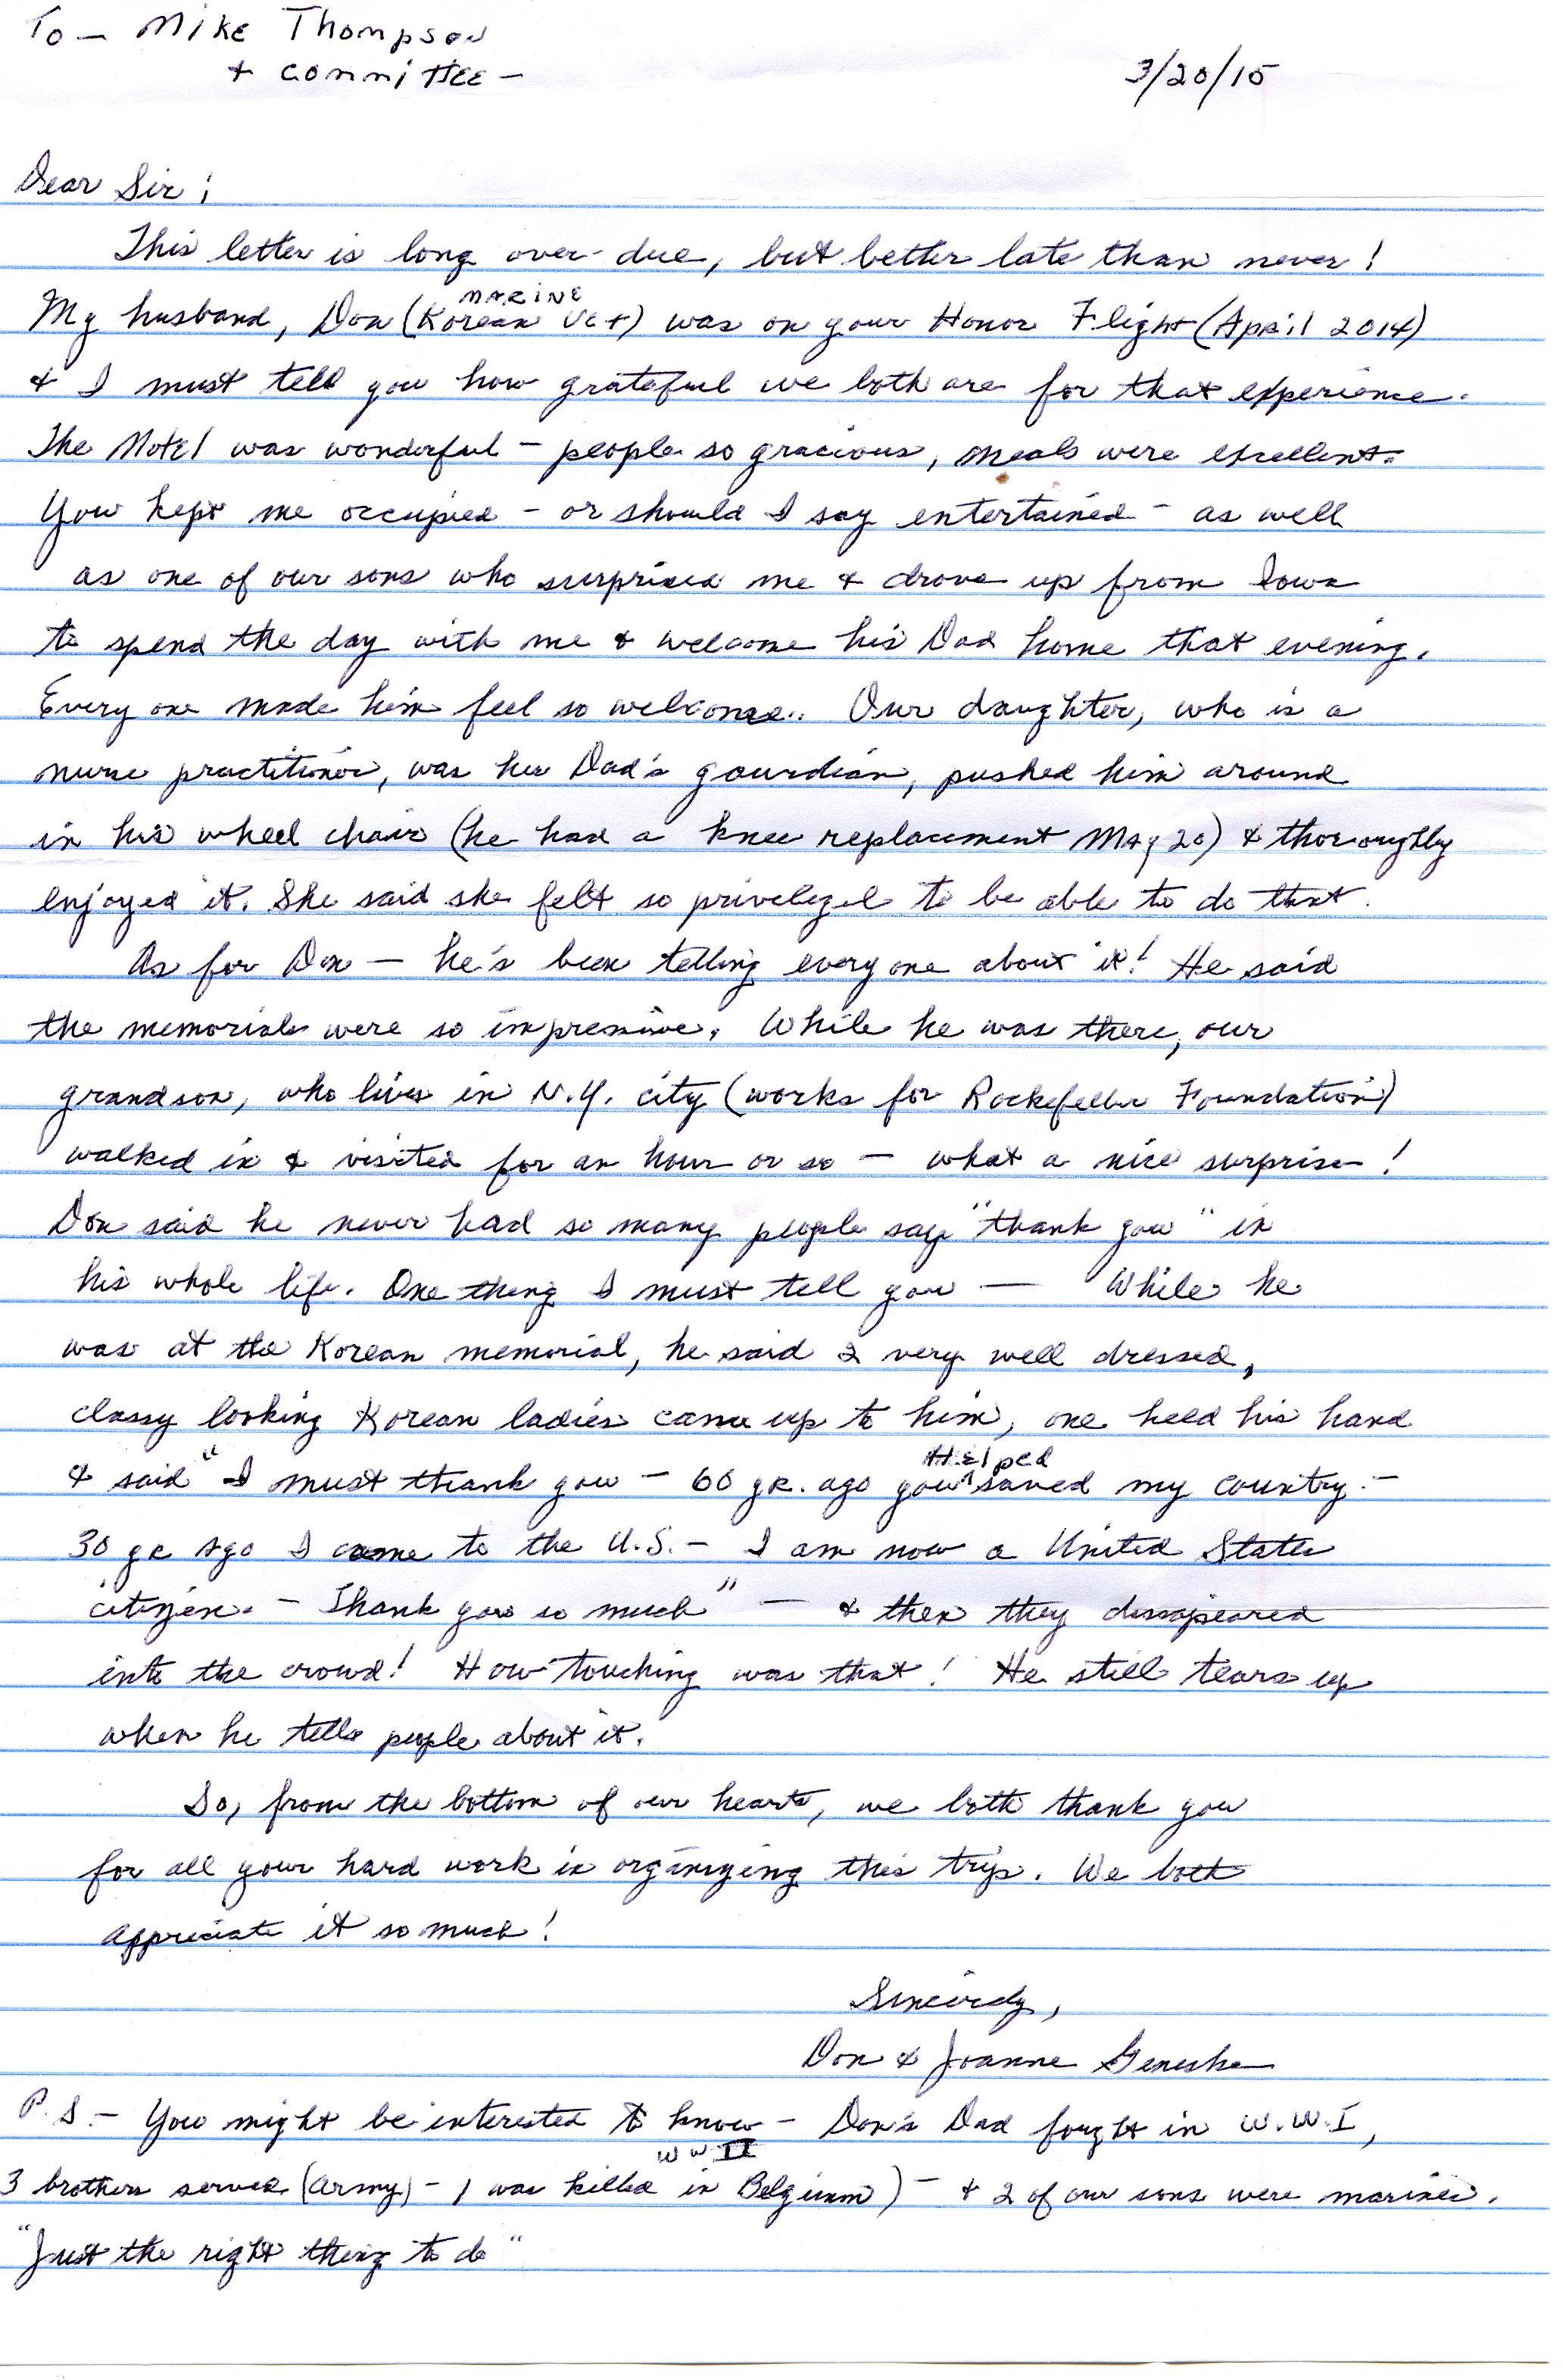 To - Mike Thompson
+ committee -
3/20/15
Dear Sir;
This letter is long over-due, but better late than never!
MARINE
My husband, Don (Korean Vet) was on your Honor Flight (April 2014)
+ I must tell you how grateful we both are for that experience.
The Motel was wonderful - people so gracious, meals were excellent.
You kept me occupied - or should I say entertained - as well
as one of our sons who surprised me + drove up from Iowa
to spend the day with me + welcome his Dad home that evening.
Every one made him feel so welcome. Our daughter, who is a
nurse practitioner, was her Dad's gaurdian, pushed him around
in his wheel chair (he had a knee replacement May 20) + thoroughly
enjoyed it. She said she felt so priveleged to be able to do that.
As for Don - he's been telling every one about it! He said
the memorials were so impressive. While he was there, our
grandson, who lives in N.Y. city (works for Rockefeller Foundation)
walked in + visited for an hour or so - what a nice surprise!
Don said he never had so many people say "thank you" in
his whole life. One thing I must tell you — While he
was at the Korean memorial, he said 2 very well dressed,
classy looking Korean ladies came up to him, one held his hand
Helped
+ said "I must thank you - 60 yr. ago you saved my country. -
30 yr ago I came to the U.S. - I am now a United States
citizen. - Thank you so much" - + then they dissapeared
into the crowd! How touching was that! He still tears up
when he tells people about it.
So, from the bottom of our hearts, we both thank you
for all your hard work in organizing this trip. We both
appreciate it so much!
Sincerely,
Don + Joanne
P.S. - You might be interested to know - Don's Dad fought in W.W.I,
WW II
3 brothers served (army) - 1 was killed in Belgium) - + 2 of our sons were marines.
"Just the right thing to do"